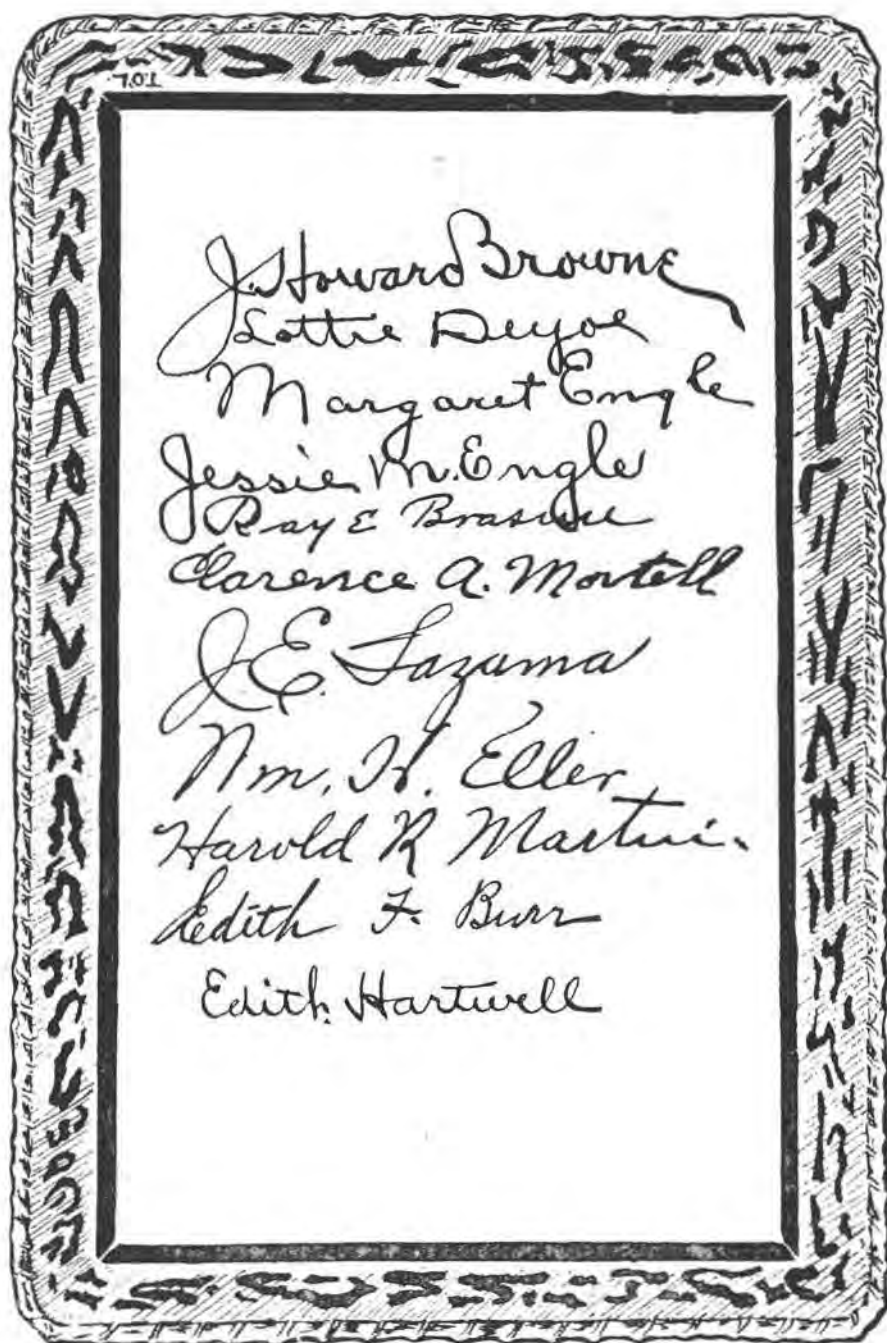 J. Howard Browne
Lottie Deyoe
Margaret Engle
Jessie M. Engle
Ray E Brasure
Clarence A. Mortell
J. E. Lazama
Wm. H. Eller
Harold R Martin.
Edith F. Burr
Edith Hartwell